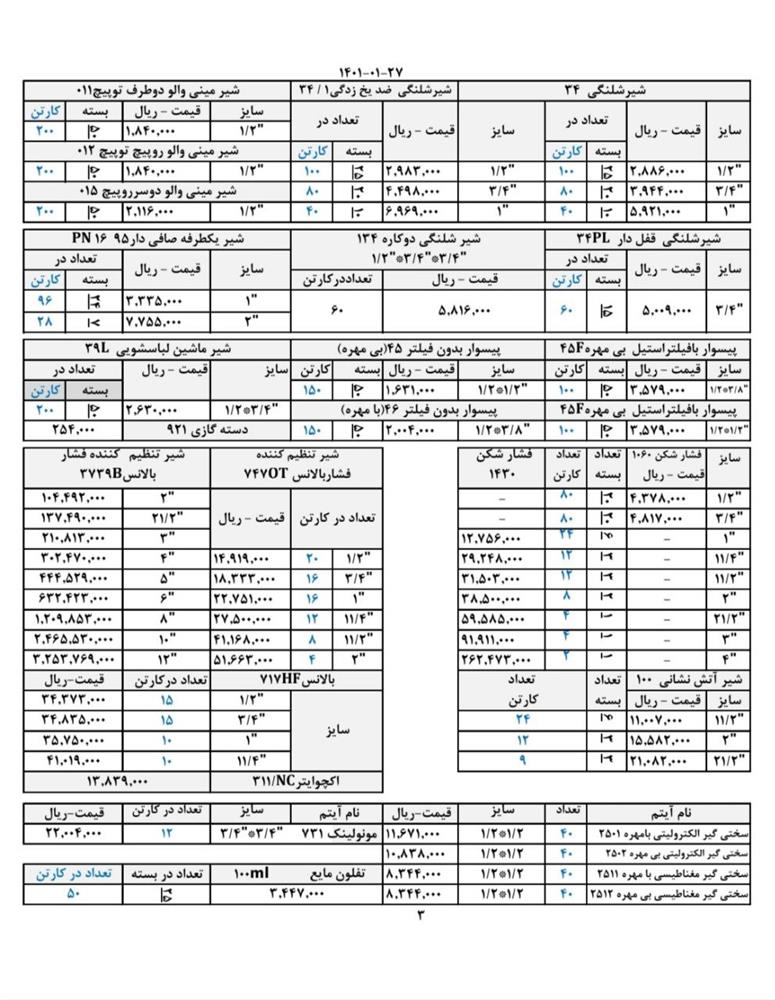 ۱۴۰۱-۰۱-۲۷
شیرشلنگی ۳۴
سایز قیمت - ریال تعداد در
بسته کارتن
۱/۲" ۲,۸۸۶,۰۰۰ ۱۰۰
۳/۴" ۳,۹۴۴,۰۰۰ ۸۰
۱" ۵,۹۲۱,۰۰۰ ۴۰
شیرشلنگی ضد یخ زدگی۱ / ۳۴
سایز قیمت - ریال تعداد در
بسته کارتن
۱/۲" ۲,۹۸۳,۰۰۰ ۱۰۰
۳/۴" ۴,۴۹۸,۰۰۰ ۸۰
۱" ۶,۹۶۹,۰۰۰ ۴۰
شیر مینی والو دوطرف توپیچ۰۱۱
سایز قیمت - ریال بسته کارتن
۱/۲" ۱,۸۴۰,۰۰۰ ۲۰۰
شیر مینی والو روپیچ توپیچ ۰۱۲
۱/۲" ۱,۸۴۰,۰۰۰ ۲۰۰
شیر مینی والو دوسرروپیچ ۰۱۵
۱/۲" ۲,۱۱۶,۰۰۰ ۲۰۰
شیرشلنگی قفل دار ۳۴PL
سایز قیمت - ریال تعداد در
بسته کارتن
۳/۴" ۵,۰۰۹,۰۰۰ ۶۰
شیر شلنگی دوکاره ۱۳۴
۱/۲"*۳/۴"*۳/۴"
قیمت - ریال تعداددرکارتن
۵,۸۱۶,۰۰۰ ۶۰
شیر یکطرفه صافی دار۹۵ PN ۱۶
سایز قیمت - ریال تعداد در
بسته کارتن
۱" ۳,۳۳۵,۰۰۰ ۹۶
۲" ۷,۷۵۵,۰۰۰ ۲۸
پیسوار بافیلتراستیل بی مهره۴۵F
سایز قیمت - ریال بسته کارتن
۱/۲*۳/۸" ۳,۵۷۹,۰۰۰ ۱۰۰
پیسوار بافیلتراستیل بی مهره۴۵F
۱/۲*۱/۲" ۳,۵۷۹,۰۰۰ ۱۰۰
پیسوار بدون فیلتر ۴۵(بی مهره)
سایز قیمت - ریال بسته کارتن
۱/۲*۱/۲" ۱,۶۳۱,۰۰۰ ۱۵۰
پیسوار بدون فیلتر ۴۶(با مهره)
۱/۲*۳/۸" ۲,۰۰۴,۰۰۰ ۱۵۰
شیر ماشین لباسشویی ۳۹L
سایز قیمت - ریال تعداد در
بسته کارتن
۱/۲*۳/۴" ۲,۶۳۰,۰۰۰ ۲۰۰
دسته گازی ۹۲۱ ۲۵۴,۰۰۰
سایز فشار شکن ۱۰۶۰ قیمت - ریال تعداد بسته تعداد کارتن فشار شکن ۱۴۳۰
۱/۲" ۴,۳۷۸,۰۰۰ ۸۰ -
۳/۴" ۴,۸۱۷,۰۰۰ ۸۰ -
۱" - ۲۴ ۱۲,۷۵۶,۰۰۰
۱۱/۴" - ۱۲ ۲۹,۲۴۸,۰۰۰
۱۱/۲" - ۱۲ ۳۱,۵۰۳,۰۰۰
۲" - ۸ ۳۸,۵۰۰,۰۰۰
۲۱/۲" - ۴ ۵۹,۵۸۵,۰۰۰
۳" - ۴ ۹۱,۹۱۱,۰۰۰
۴" - ۲ ۲۶۲,۴۷۳,۰۰۰
شیر آتش نشانی ۱۰۰ تعداد بسته تعداد کارتن
سایز قیمت - ریال
۱۱/۲" ۱۱,۰۰۷,۰۰۰ ۲۴
۲" ۱۵,۵۸۲,۰۰۰ ۱۲
۲۱/۲" ۲۱,۰۸۲,۰۰۰ ۹
شیر تنظیم کننده
فشاربالانس ۷۴۷OT
تعداد در کارتن قیمت - ریال
۱/۲" ۲۰ ۱۴,۹۱۹,۰۰۰
۳/۴" ۱۶ ۱۸,۳۳۳,۰۰۰
۱" ۱۶ ۲۲,۷۵۱,۰۰۰
۱۱/۴" ۱۲ ۲۷,۵۰۰,۰۰۰
۱۱/۲" ۸ ۴۱,۱۶۸,۰۰۰
۲" ۴ ۵۱,۶۶۳,۰۰۰
شیر تنظیم کننده فشار
بالانس۳۷۳۹B
۲" ۱۰۴,۴۹۲,۰۰۰
۲۱/۲" ۱۳۷,۴۹۰,۰۰۰
۳" ۲۱۰,۸۱۳,۰۰۰
۴" ۳۰۲,۴۷۰,۰۰۰
۵" ۴۴۴,۵۲۹,۰۰۰
۶" ۶۳۲,۴۲۳,۰۰۰
۸" ۱,۲۰۹,۸۵۳,۰۰۰
۱۰" ۲,۴۶۵,۵۳۰,۰۰۰
۱۲" ۳,۲۵۳,۷۶۹,۰۰۰
بالانس۷۱۷HF تعداد درکارتن قیمت-ریال
سایز
۱/۲" ۱۵ ۳۴,۳۷۳,۰۰۰
۳/۴" ۱۵ ۳۴,۸۳۵,۰۰۰
۱" ۱۰ ۳۵,۷۵۰,۰۰۰
۱۱/۴" ۱۰ ۴۱,۰۱۹,۰۰۰
اکچوایتر۳۱۱/NC ۱۳,۸۳۹,۰۰۰
نام آیتم تعداد سایز قیمت-ریال نام آیتم سایز تعداد در کارتن قیمت-ریال
سختی گیر الکترولیتی بامهره ۲۵۰۱ ۴۰ ۱/۲*۱/۲ ۱۱,۶۷۱,۰۰۰ مونولینک ۷۳۱ ۳/۴"*۳/۴" ۱۲ ۲۲,۰۰۴,۰۰۰
سختی گیر الکترولیتی بی مهره ۲۵۰۲ ۴۰ ۱/۲*۱/۲ ۱۰,۸۳۸,۰۰۰
سختی گیر مغناطیسی با مهره ۲۵۱۱ ۴۰ ۱/۲*۱/۲ ۸,۳۴۴,۰۰۰ تفلون مایع ۱۰۰ml تعداد در بسته تعداد در کارتن
سختی گیر مغناطیسی بی مهره ۲۵۱۲ ۴۰ ۱/۲*۱/۲ ۸,۳۴۴,۰۰۰ ۳,۴۴۷,۰۰۰ ۵۰
۳